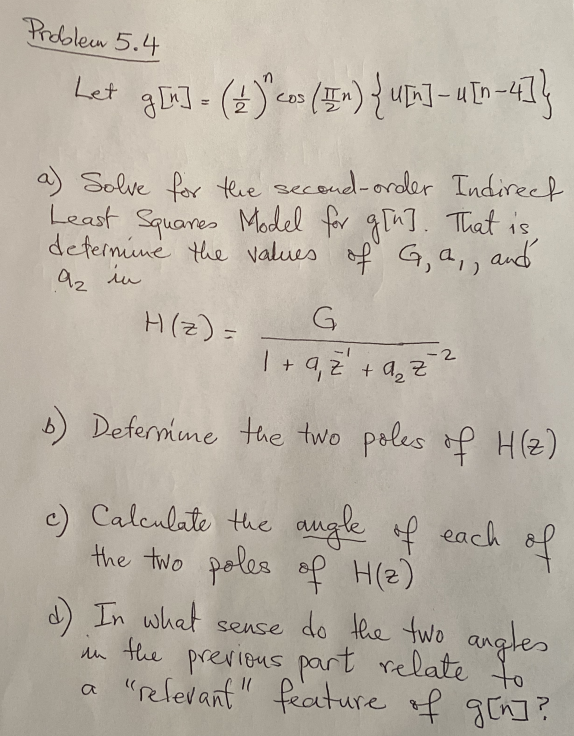 Problem 5.4
Let g[n] = (1/2)^n cos(π/2 n) {u[n] - u[n-4]}
a) Solve for the second-order Indirect
Least Squares Model for g[n]. That is,
determine the values of G, a₁, and
a₂ in
H(z) = G / (1 + a₁z⁻¹ + a₂z⁻²)
b) Determine the two poles of H(z)
c) Calculate the angle of each of
the two poles of H(z)
d) In what sense do the two angles
in the previous part relate to
a "relevant" feature of g[n]?